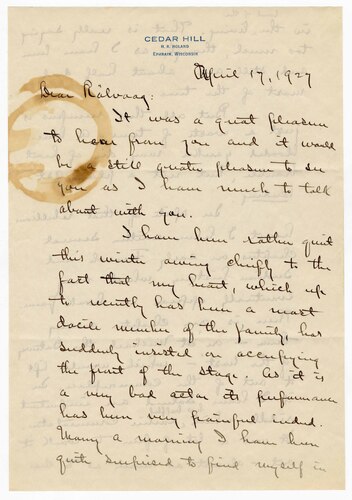 CEDAR HILL
R. R. ROLAND
EPHRAIM, WISCONSIN
April 17, 1927
Dear Rölvaag:
It was a great pleasure
to hear from you and it would
be a still greater pleasure to see
you as I have much to talk
about with you.
I have been rather quiet
this winter owing chiefly to the
fact that my heart, which up
to recently has been a most
docile member of the family, has
suddenly insisted on occupying
the front of the stage. As it is
a very bad actor its performance
has been very painful indeed.
Many a morning I have been
quite surprised to find myself in